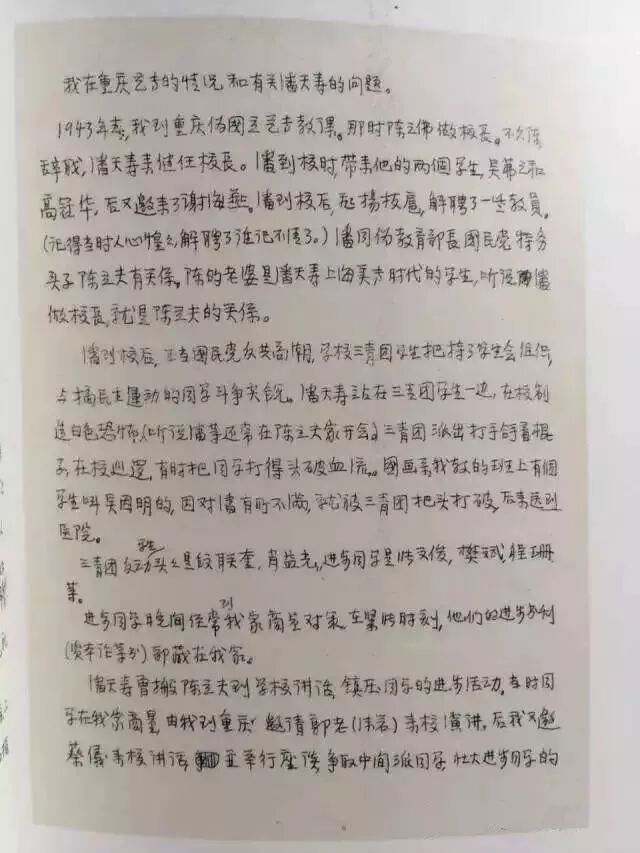 我在重庆艺专的情况和有关潘天寿的问题。
1943年春,我到重庆伪國立艺专教课。那时陈之佛做校長。不久陈
辞职,潘天寿来继任校長。潘到校时,帶来他的两個学生,吴茀之和
高冠华,后又邀来了谢海燕。潘到校后,飞揚拔扈,解聘了一些教員。
(记得当时人心惶々,解聘了谁记不清了。)潘同伪教育部長國民党特务
头子陈立夫有关係。陈的老婆是潘天寿上海美专时代的学生,听说潘
做校長,就是陈立夫的关係。
潘到校后,正当國民党反共高潮,学校三青团学生把持了学生会组织,
与搞民主運动的同学斗争尖锐。潘天寿站在三青团学生一边,在校制
造白色恐怖(听说潘等还常在陈立夫家开会)三青团派出打手拿着棍
子,在校巡邏,有时把同学打得头破血流。國画系我教的班上有個
学生叫吴國明的,因对潘有所不满,就被三青团把头打破,后来送到
医院。
三青团反动学生头々是 联奎,肖益光,进步同学是 文俊,樊斌,程珊
等。
进步同学晚间经常到我家商量对策,在紧张时刻,他们的进步书刊
(资本论等列)都藏在我家。
潘天寿曾搬陈立夫到学校讲话,镇压同学的进步活动。当时同
学在我家商量,由我到重庆邀请郭老(沫若)来校演讲。后我又邀
蔡儀来校讲话,并举行座谈,争取中间派同学,壮大进步同学的